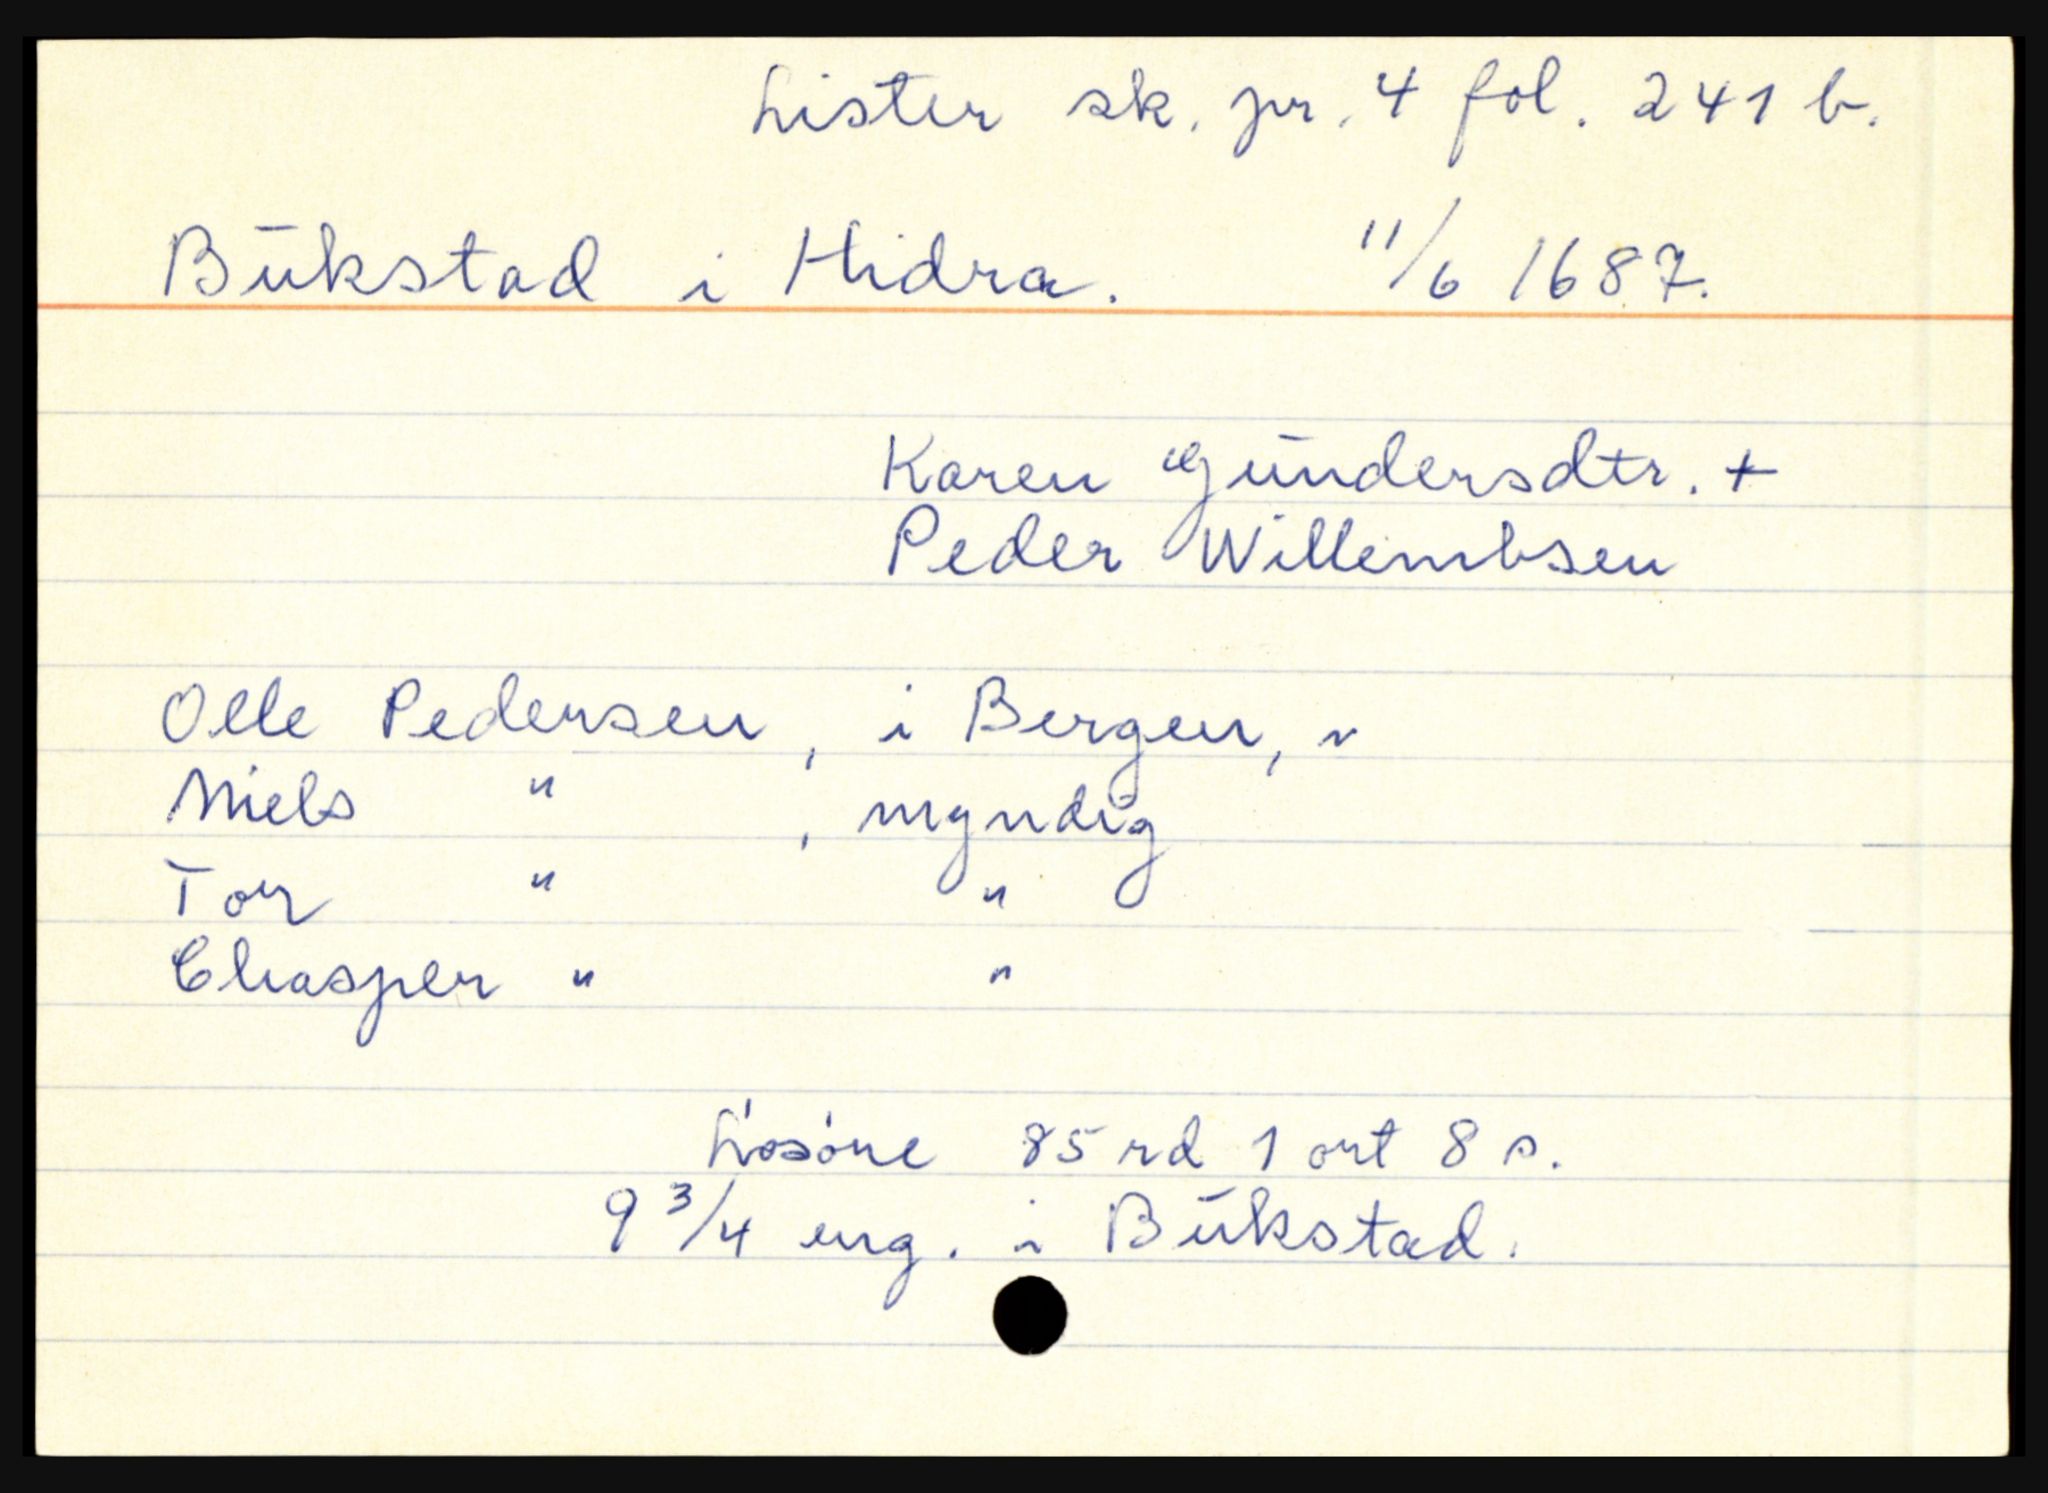 Lister sk. pr. 4 fol. 241 b.
Bukstad i Hidra. 11/6 1687.
Karen Gundersdtr. +
Peder Willembsen
Olle Pedersen, i Bergen,
Niels " , myndig
Tor " "
Chasper " "
Løsøre 85 rd 1 ort 8 s.
9 3/4 eng. i Bukstad.